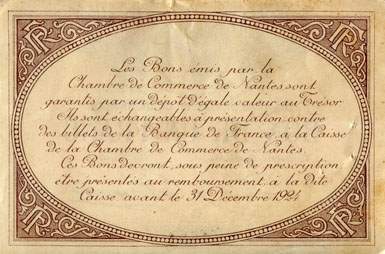 RF
RF
Les Bons émis par la
Chambre de Commerce de Nantes sont
garantis par un dépot d'égale valeur au Trésor
Ils sont echangeables à présentation contre
des billets de la Banque de France à la Caisse
de la Chambre de Commerce de Nantes.
Ces Bons devront, sous peine de prescription
être présentés au remboursement à la dite
Caisse avant le 31 Décembre 1924
RF
RF